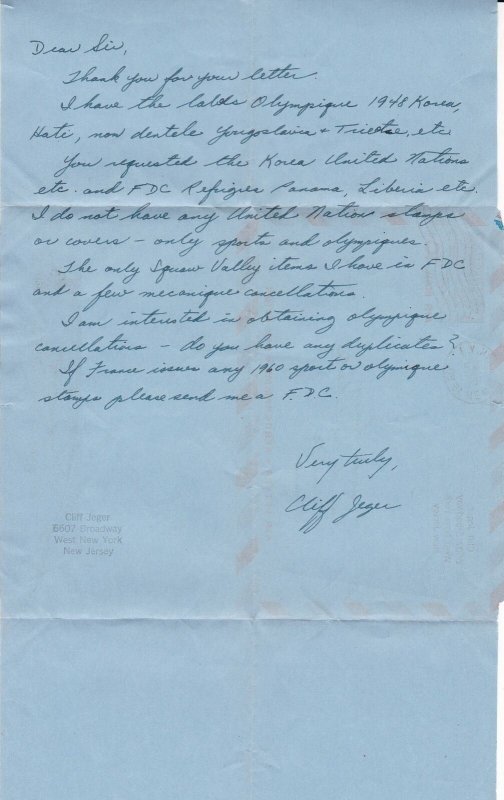 Dear Sir,
Thank you for your letter.
I have the labels Olympique 1948 Korea,
Hati, non dentele Yougoslavia + Trieste, etc
You requested the Korea United Nations
etc. and FDC Refugies Panama, Liberia etc.
I do not have any United Nation stamps
or covers – only sports and olympiques.
The only Squaw Valley items I have is FDC
and a few mecanique cancellations.
I am interested in obtaining olympique
cancellations – do you have any duplicates?
If France issues any 1960 sport or olympique
stamps please send me a F.D.C.
Very truly,
Cliff Jeger
Cliff Jeger
6607 Broadway
West New York
New Jersey